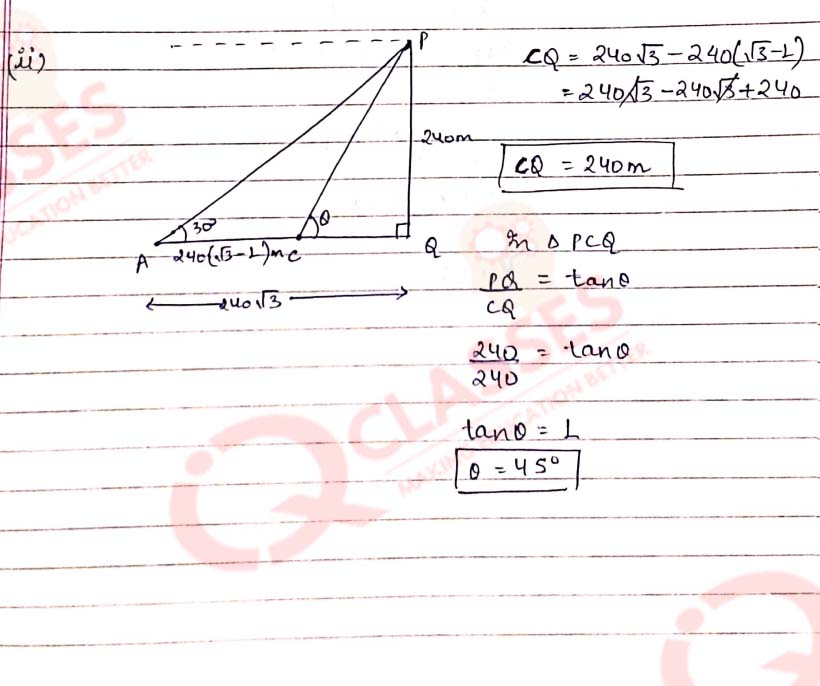 (ii)
P
240m
30°
θ
A
240(√3-1)m C
Q
240√3
CQ = 240√3 - 240(√3-1)
= 240√3 - 240√3 + 240
CQ = 240m
In Δ PCQ
PQ/CQ = tanθ
240/240 = tanθ
tanθ = 1
θ = 45°
CLASSES
CLASSES